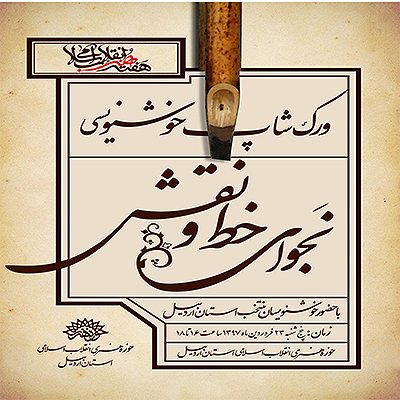 هفته هنر انقلاب اسلامی
ورک شاپ خوشنویسی
نجوای خط و نقش
با حضور خوشنویسان منتخب استان اردبیل
زمان: پنج شنبه ۲۳ فروردین ماه ۱۳۹۷ ساعت ۱۶ تا ۱۸
حوزه هنری انقلاب اسلامی استان اردبیل
حوزه هنری انقلاب اسلامی
استان اردبیل